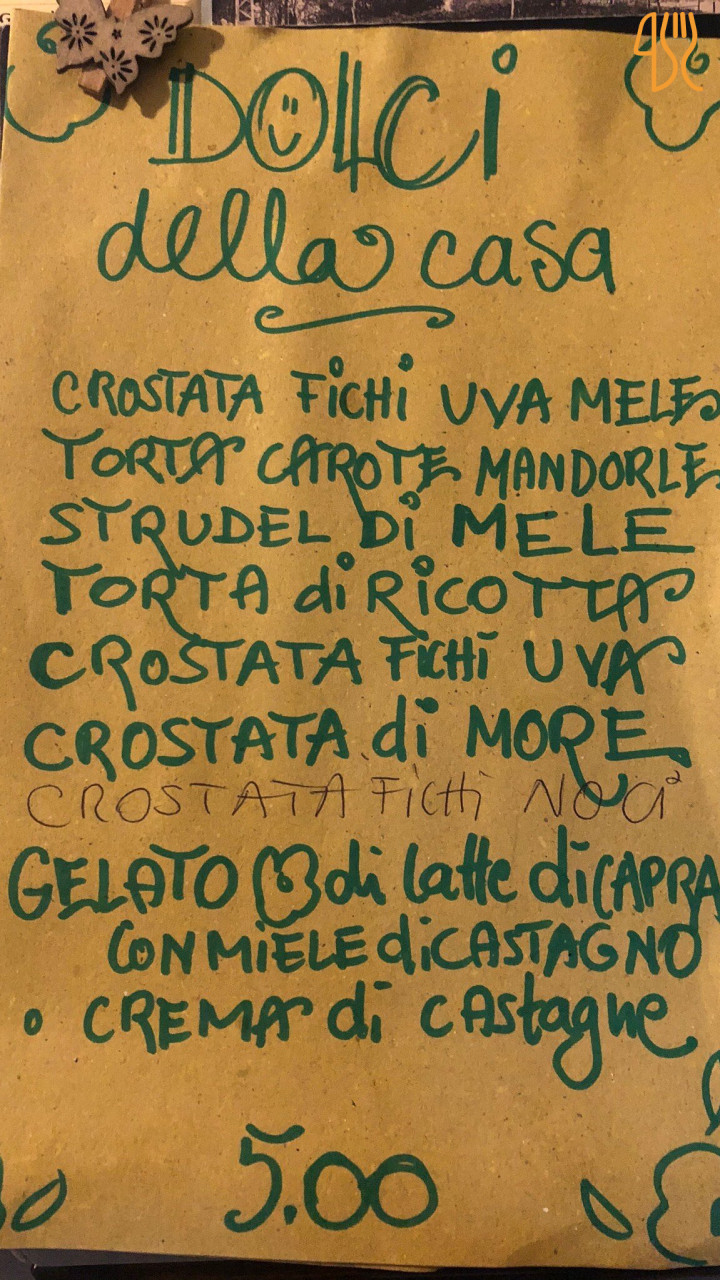 DOLCI
della casa
CROSTATA FiCHi UVA MELE
TORTA CAROTE MANDORLE
STRUDEL Di MELE
TORTA di RiCOTTA
CROSTATA FiCHi UVA
CROSTATA di MORE
CROSTATA FiCHi NOCi
GELATO di latte di CAPRA
CON MiELE di CASTAGNO
o CREMA di CAstagne
5.00